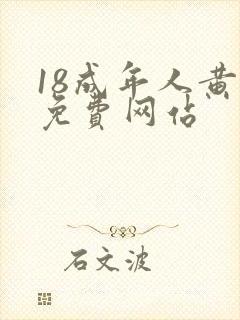 18成年人黄
免費网站
石文波